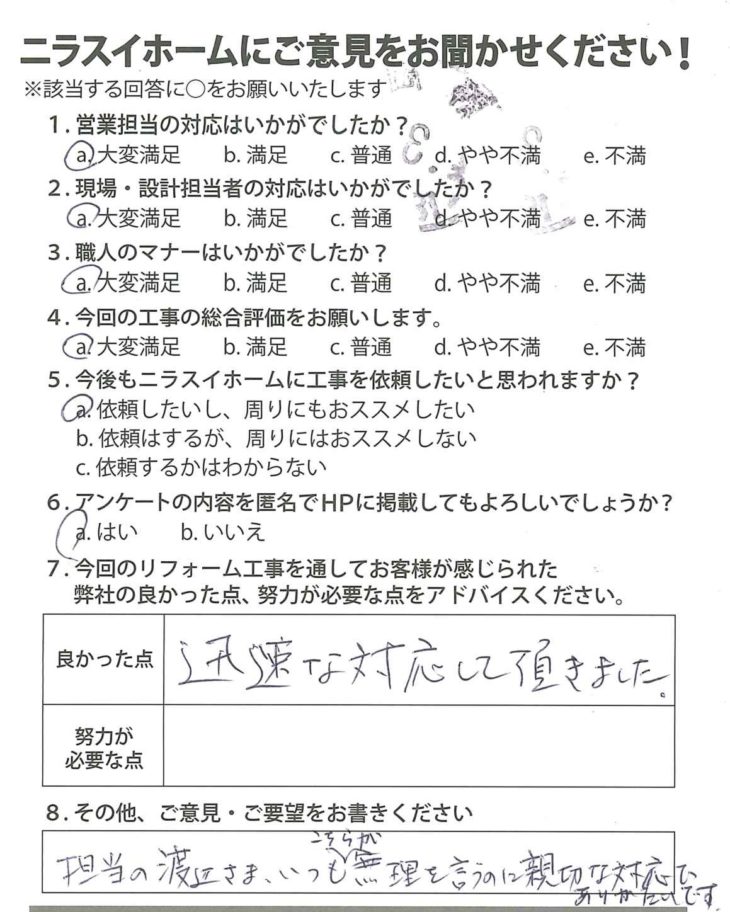 ニラスイホームにご意見をお聞かせください!
※該当する回答に○をお願いいたします
1. 営業担当の対応はいかがでしたか?
a. 大変満足 b. 満足 c. 普通 d. やや不満 e. 不満
2. 現場・設計担当者の対応はいかがでしたか?
a. 大変満足 b. 満足 c. 普通 d. やや不満 e. 不満
3. 職人のマナーはいかがでしたか?
a. 大変満足 b. 満足 c. 普通 d. やや不満 e. 不満
4. 今回の工事の総合評価をお願いします。
a. 大変満足 b. 満足 c. 普通 d. やや不満 e. 不満
5. 今後もニラスイホームに工事を依頼したいと思われますか?
a. 依頼したいし、周りにもおススメしたい
b. 依頼はするが、周りにはおススメしない
c. 依頼するかはわからない
6. アンケートの内容を匿名でHPに掲載してもよろしいでしょうか?
a. はい b. いいえ
7. 今回のリフォーム工事を通してお客様が感じられた
弊社の良かった点、努力が必要な点をアドバイスください。
良かった点 迅速な対応して頂きました。
努力が
必要な点
8. その他、ご意見・ご要望をお書きください
こちらが
担当の渡辺さま、いつも無理を言うのに親切な対応で
ありがたいです。